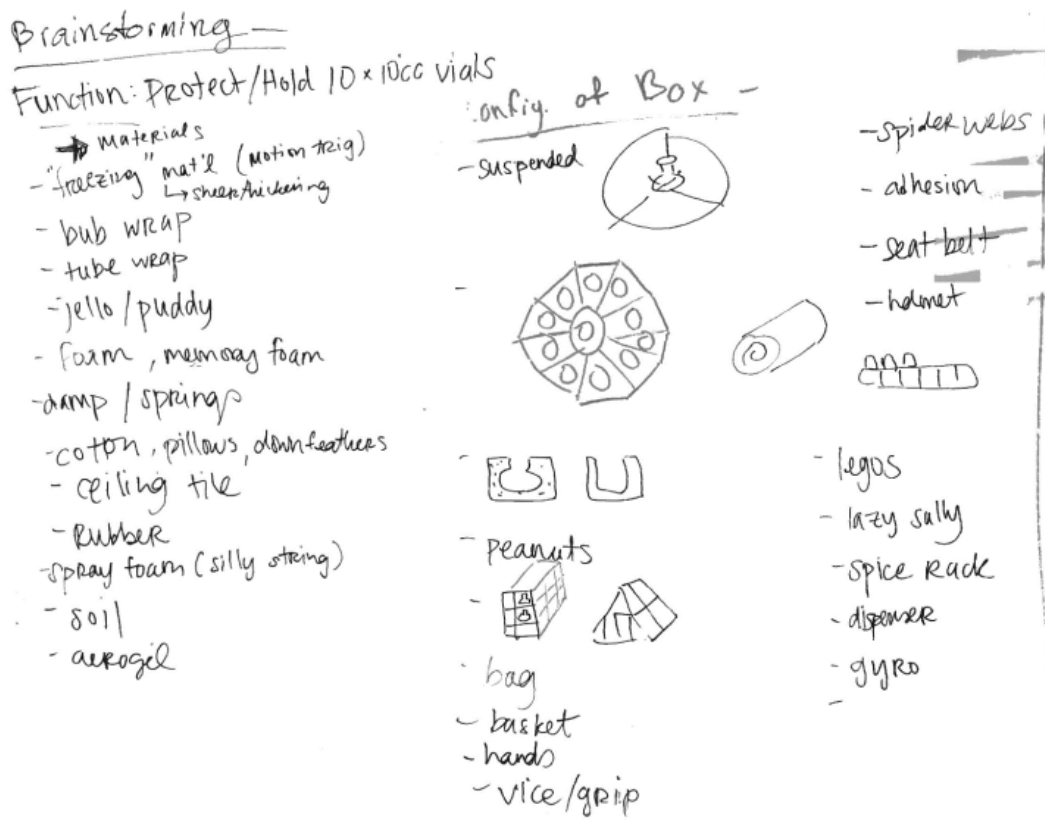 Brainstorming —
Function: Protect/Hold 10 x 10cc vials
→ Materials
- "freezing" mat'l (Motion trig)
↳ sheer thickering
- bub wrap
- tube wrap
- jello / puddy
- Foam, memory foam
- damp / springs
- cotton, pillows, down feathers
- ceiling tile
- Rubber
- spray foam (silly string)
- soil
- aerogel
onfig. of Box -
- suspended
- peanuts
- bag
- basket
- hands
- vice/grip
- spider webs
- adhesion
- seat belt
- helmet
- legos
- lazy sally
- spice Rack
- dispenser
- gyro